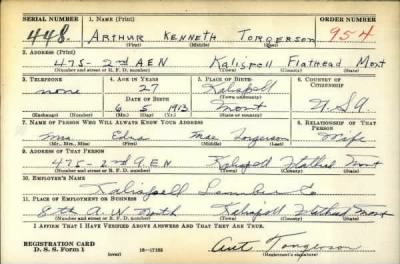 SERIAL NUMBER 1. NAME (Print) ORDER NUMBER
448 ARTHUR KENNETH TORGERSON 954
(First) (Middle) (Last)
2. ADDRESS (Print)
475- 2nd A E N Kalispell Flathead Mont
(Number and street or R. F. D. number) (Town) (County) (State)
3. TELEPHONE 4. AGE IN YEARS 5. PLACE OF BIRTH 6. COUNTRY OF CITIZENSHIP
none 27 Kalispell
DATE OF BIRTH (Town or county)
6 5 1913 Mont U.S.A.
(Exchange) (Number) (Mo.) (Day) (Yr.) (State or country)
7. NAME OF PERSON WHO WILL ALWAYS KNOW YOUR ADDRESS 8. RELATIONSHIP OF THAT PERSON
Mrs Edna Mae Torgerson Wife
(Mr., Mrs., Miss) (First) (Middle) (Last)
9. ADDRESS OF THAT PERSON
475- 2nd A E N Kalispell Flathead Mont
(Number and street or R. F. D. number) (Town) (County) (State)
10. EMPLOYER'S NAME
Kalispell Lumber Co
11. PLACE OF EMPLOYMENT OR BUSINESS
8th A. W. North Kalispell Flathead Mont
(Number and street or R. F. D. number) (Town) (County) (State)
I AFFIRM THAT I HAVE VERIFIED ABOVE ANSWERS AND THAT THEY ARE TRUE.
REGISTRATION CARD
D. S. S. Form 1 (over) 16-17105 Art Torgerson
(Registrant's signature)